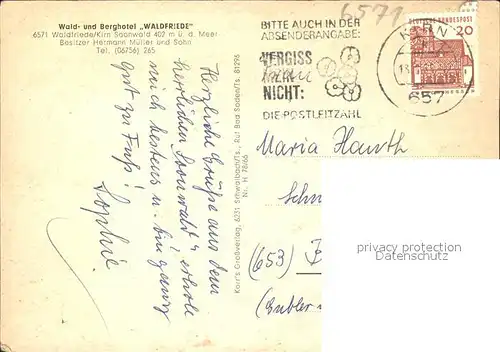 Wald- und Berghotel "WALDFRIEDE"
6571 Waldfriede/Kirn Soonwald 402 m ü. d. Meer
Besitzer Hermann Müller und Sohn
Tel. (06756) 265
6571
BITTE AUCH IN DER
ABSENDERANGABE:
VERGISS
NICHT:
DIE POSTLEITZAHL
KIRN
657
DEUTSCHE BUNDESPOST
20
Herzliche Grüße aus dem
herrlichen Soonwald, erhole
mich bestens u. bin ganz
gut zu Fuß!
Sophie
Karr's Großverlag, 6231 Schwalbach/Ts., Ruf Bad Soden/Ts. 81295
Nr. H 78/66
Maria Hauth
(653)
privacy protection
ansichtskartenversand